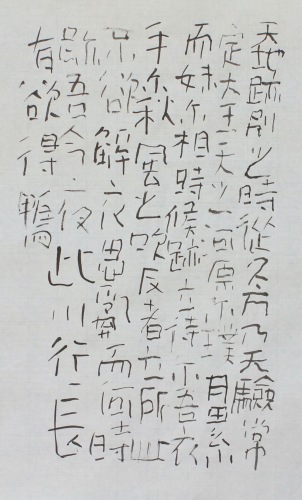 天地跡別之時從久方乃天驗常
定大王天之河原尓璞月累
而妹尓相時候跡立待尓吾衣
手尓秋風之吹反者立
不欲解衣思亂而何時
跡吾今夜此川行長
有欲得鴨